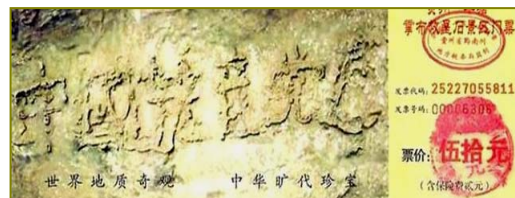 中國共产党亡
世界地质奇观 中华旷代珍宝
掌布救星石景区门票
贵州省黔南州
发票代码: 25227055811
发票号码: 00006306
票价: 伍拾元
(含保险费贰元)